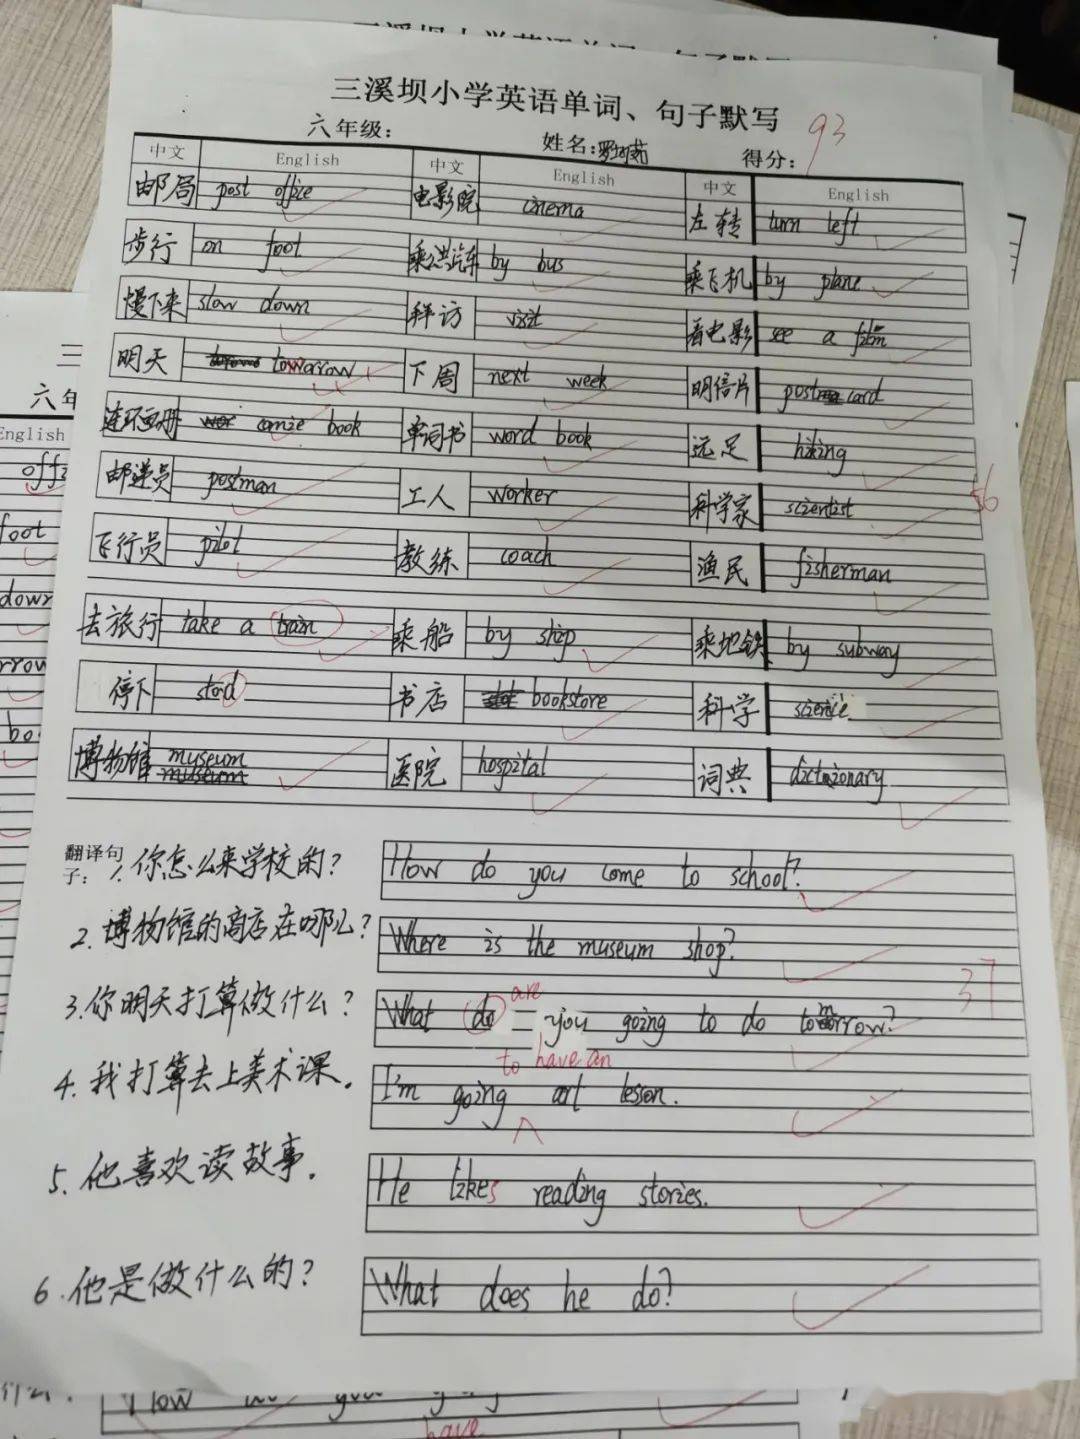 三溪坝小学英语单词、句子默写
六年级： 姓名： 得分： 93
中文 English 中文 English 中文 English
邮局 post office 电影院 cinema 左转 turn left
步行 on foot 乘公共汽车 by bus 乘飞机 by plane
慢下来 slow down 拜访 visit 看电影 see a film
明天 towarrow 下周 next week 明信片 post card
连环画册 comic book 单词书 word book 远足 hiking
邮递员 postman 工人 worker 科学家 scientist
56
飞行员 pilot 教练 coach 渔民 fisherman
去旅行 take a train 乘船 by ship 乘地铁 by subway
停下 stod 书店 bookstore 科学 science
博物馆 museum 医院 hospital 词典 dictionary
museum
翻译句子： 1.你怎么来学校的？ How do you come to school?
2.博物馆的商店在哪儿？ Where is the museum shop?
37
are
3.你明天打算做什么？ What do you going to do tomorrow?
to have an
4.我打算去上美术课。 I'm going art lesson.
5.他喜欢读故事。 He likes reading stories.
6.他是做什么的？ What does he do?
English
foot
down
have